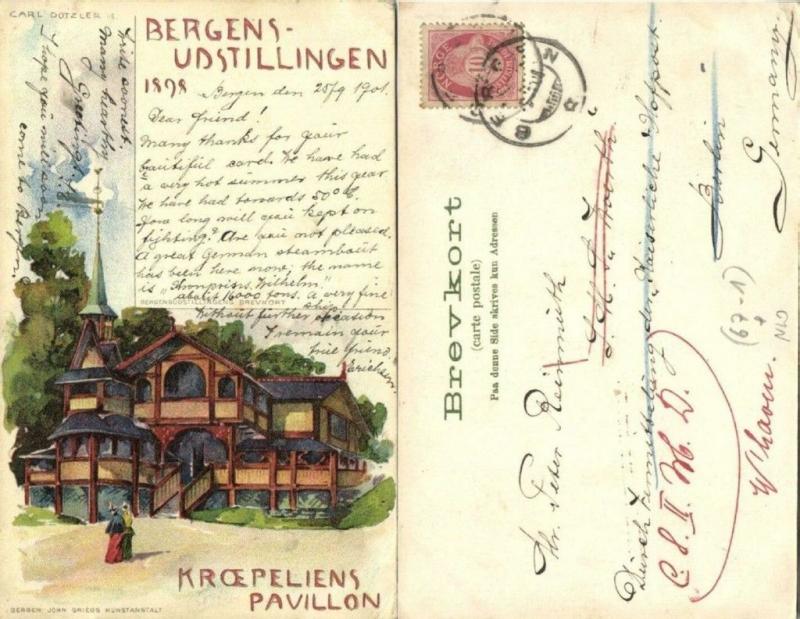 CARL DOTZLER
BERGENS-
UDSTILLINGEN
1898
Bergen den 25/9 1901.
Dear friend!
Many thanks for your
bautiful card. We have had
a very hot summer this year
We have had towards 50° C.
How long will you kept on
fighting? Are you not pleased.
A great German steamboat
has been here now; the name
is "Kronprins Wilhelm"
about 16000 tons. A very fine
ship
Without further occasion
I remain your
true friend
Erichsen
I hope you will soon
come to Bergen
BERGENSUDSTILLINGENS BREVKORT
KRŒPELIENS
PAVILLON
BERGEN JOHN GRIEGS KUNSTANSTALT
NORGE
10
BERGEN
Brevkort
(carte postale)
Paa denne Side skrives kun Adressen
Hr. Peter Reinmuth
Durch Vermittelung des Kaiserliche Hofpost.
Berlin
Germany
C. S. II. M. D.
W'haven.
(67-1)